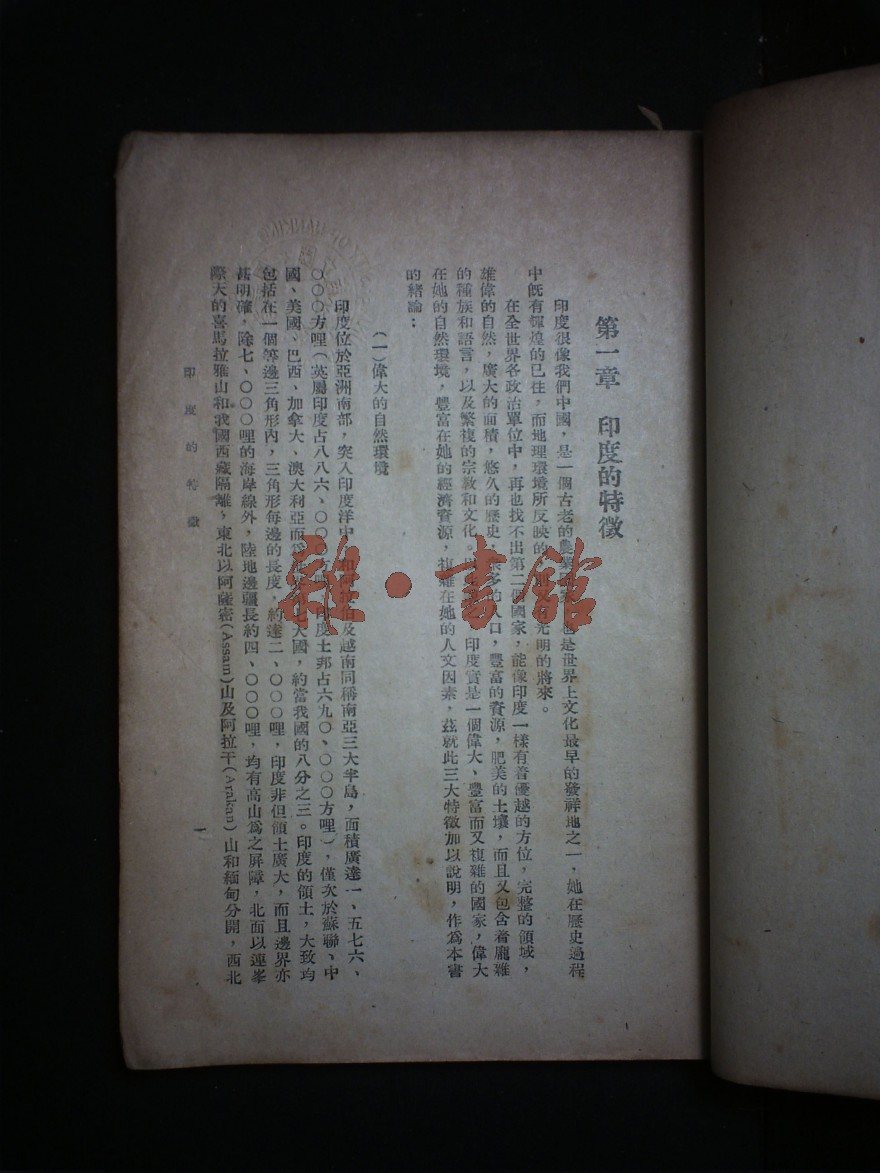 第一章 印度的特徵
印度很像我們中國，是一個古老的農業 也是世界上文化最早的發祥地之一，她在歷史過程
中既有輝煌的已往，而地理環境所反映的 光明的將來。
在全世界各政治單位中，再也找不出第二個國家，能像印度一樣有着優越的方位，完整的領域，
雄偉的自然，廣大的面積，悠久的歷史， 多的人口，豐富的資源，肥美的土壤，而且又包含着龐雜
的種族和語言，以及繁複的宗教和文化。 印度實是一個偉大、豐富而又複雜的國家，偉大
在她的自然環境，豐富在她的經濟資源，複雜在她的人文因素，茲就此三大特徵加以說明，作爲本書
的緒論：
（一）偉大的自然環境
印度位於亞洲南部，突入印度洋中，和 及越南同稱南亞三大半島，面積廣達一、五七六、
〇〇〇方哩（英屬印度占八八六、〇〇〇方哩，印度土邦占六九〇、〇〇〇方哩），僅次於蘇聯、中
國、美國、巴西、加拿大、澳大利亞而爲 七大國，約當我國的八分之三。印度的領土，大致均
包括在一個等邊三角形內，三角形每邊的長度，約達二、〇〇〇哩，印度非但領土廣大，而且邊界亦
甚明確，除七、〇〇〇哩的海岸線外，陸地邊疆長約四、〇〇〇哩，均有高山爲之屏障，北面以連峯
際天的喜馬拉雅山和我國西藏隔離，東北以阿薩密(Assam)山及阿拉干(Arakan)山和緬甸分開，西北
印度的特徵
一
雜·書館